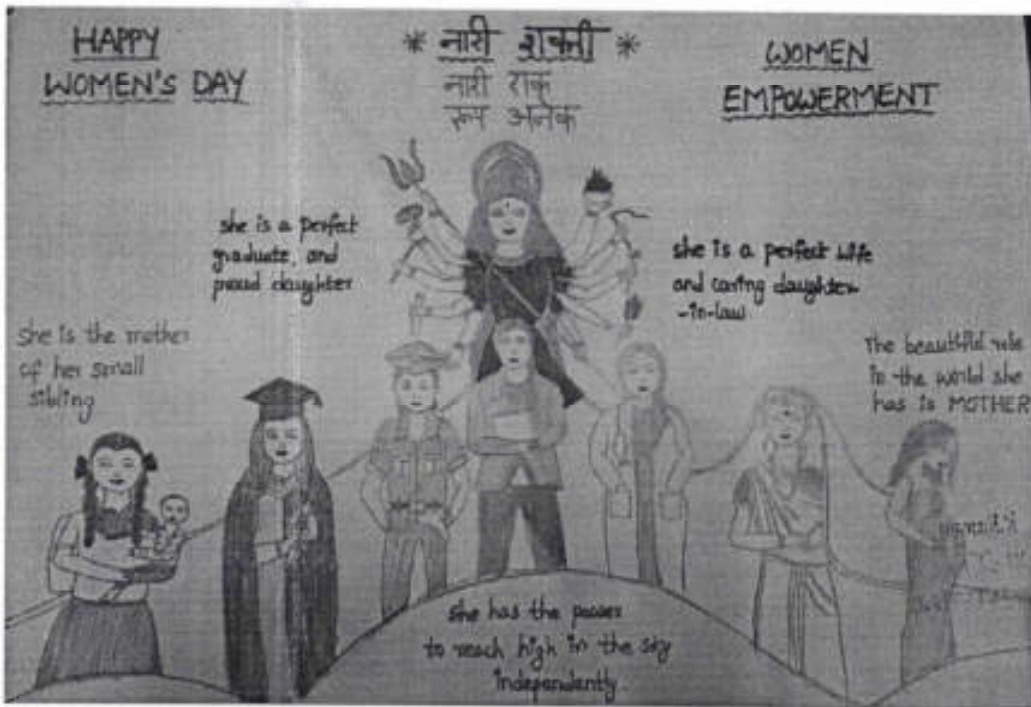 HAPPY
WOMEN'S DAY
* नारी शक्ती *
नारी एक
रूप अनेक
WOMEN
EMPOWERMENT
she is a perfect
graduate, and
proud daughter
she is a perfect wife
and caring daughter
-in-law
she is the mother
of her small
sibling
The beautiful role
in the world she
has is MOTHER
she has the power
to reach high in the sky
independently.